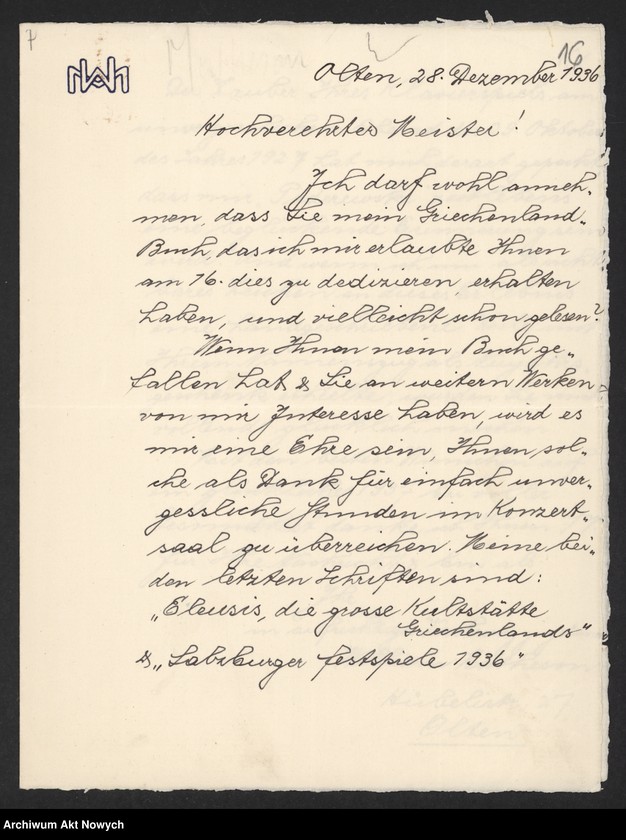 7
16
Olten, 28. Dezember 1936
Hochverehrter Meister!
Ich darf wohl anneh-
men, dass Sie mein Griechenland-
Buch, das ich mir erlaubte Ihnen
am 16. dies zu dedizieren, erhalten
haben, und vielleicht schon gelesen?
Wenn Ihnen mein Buch ge-
fallen hat & Sie an weitern Werken
von mir Interesse haben, wird es
mir eine Ehre sein, Ihnen sol-
che als Dank für einfach unver-
gessliche Stunden im Konzert-
saal zu überreichen. Meine bei-
den letzten Schriften sind:
„Eleusis, die grosse Kultstätte
Griechenlands"
& „Salzburger Festspiele 1936"
Archiwum Akt Nowych